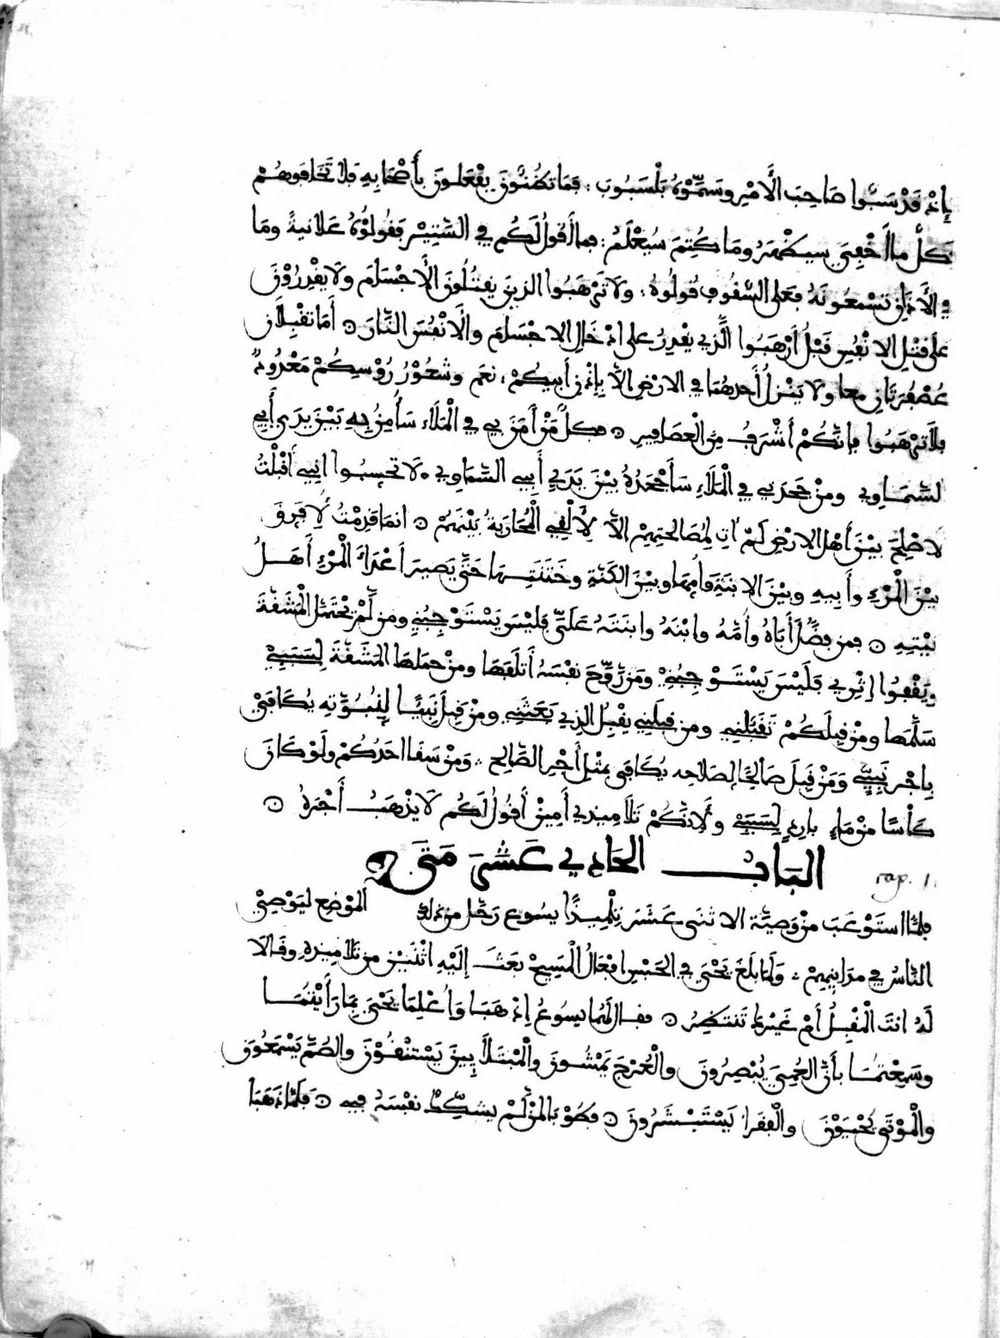 إذ قد سبّوا صاحب الأمر وسمّوه بلسبوب فما تظنّون يفعلون بأصحابه فلا تخافوهم
كلّ ما أخفي سيظهر وما كتم سيعلم فما أقول لكم في الستير فقولوه علانية وما
في الأذان تسمعونه فعلى السقوف قولوه ولا ترهبوا الذين يقتلون الأجسام ولا يقدرون
على قتل الانفس قبل أرهبوا الذي يقدر على ادخال الاجسام والأنفس النار أما تقبلان
عصفرتان معا ولا ينزل أحدهما في الارض الا بإذن أبيكم نعم وشعور رؤسكم معدودة
فلا ترهبوا فإنكم أشرف من العصافير فكل من أمن بي في الملاء سأمن به بين يدي أبي
السماوي ومن جحدني في الملاء سأجحده بين يدي أبي السماوي لا تحسبوا اني أقبلت
لاصلح بين أهل الارض لم ات لمصالحتهم الا لألقي المحاربة بينهم انما قدمت لافرق
بين المرء وأبيه وبين الابنة وأمها وبين الكنة وختنتها حتى يصير أعداء المرء أهل
بيته فمن فضل أباه وأمه وابنه وابنته علي فليس يستوجبني ومن لم يحتمل المشقة
ويقفوا إثري فليس يستوجبني ومن روح نفسه أتلفها ومن حملها المشقة لسببي
سلمها ومن قبلكم تقبلني ومن قبلني يقبل الذي بعثني ومن قبل نبيّا لنبوّته يكافى
باجر نبي ومن قبل صالحا لصلاحه يكافى بمثل أجر الصالح ومن سقا احدكم ولو كان
كأسا من ماء بارد لسببي ولانكم تلاميذي أمين أقول لكم لا يذهب أجره
الباب الحادي عشر متى
cap. 11
فلما استوعب من وصية الاثنى عشر تلميذا يسوع رحل من ذلك الموضع ليوصي
الناس في مداينهم ولما بلغ يحي في الحبس افعال المسيح بعث إليه اثنين من تلاميذه وقالا
له انت المقبل أم غيرك ننتظر فقال لهما يسوع إذهبا واعلما يحي بما رأيتما
وسمعتما بأن العمي يبصرون والعرج يمشون والمبتلايين يستنقون والصم يسمعون
والموتى يحيون والفقرا يستبشرون فطوبا لمن لم يشكك نفسه في فلما ذهبا